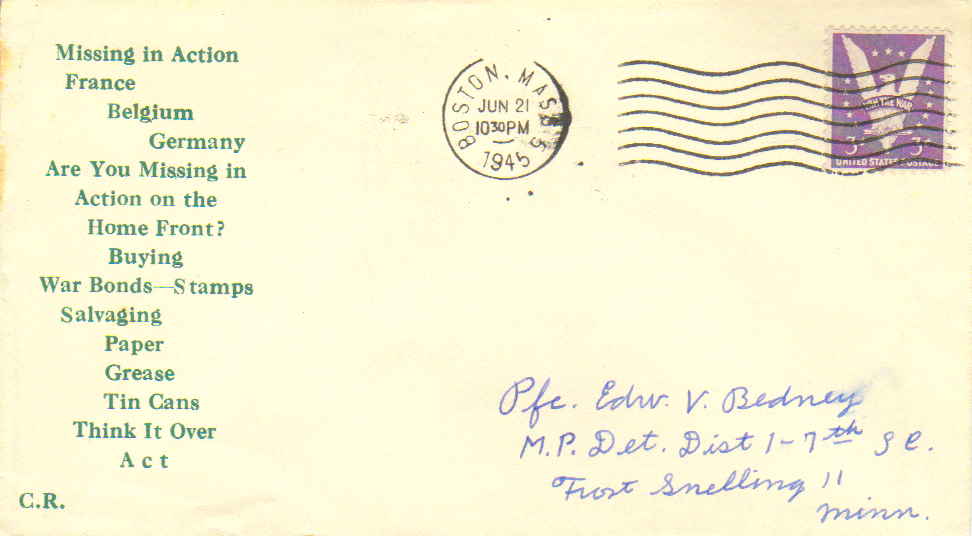 Missing in Action
France
Belgium
Germany
Are You Missing in
Action on the
Home Front?
Buying
War Bonds—Stamps
Salvaging
Paper
Grease
Tin Cans
Think It Over
Act
C.R.
BOSTON, MASS.
JUN 21
1030PM
1945
WIN THE WAR
3¢ 3¢
UNITED STATES POSTAGE
Pfc. Edw. V. Bedney
M.P. Det. Dist 1-7th S C.
Fort Snelling 11
Minn.